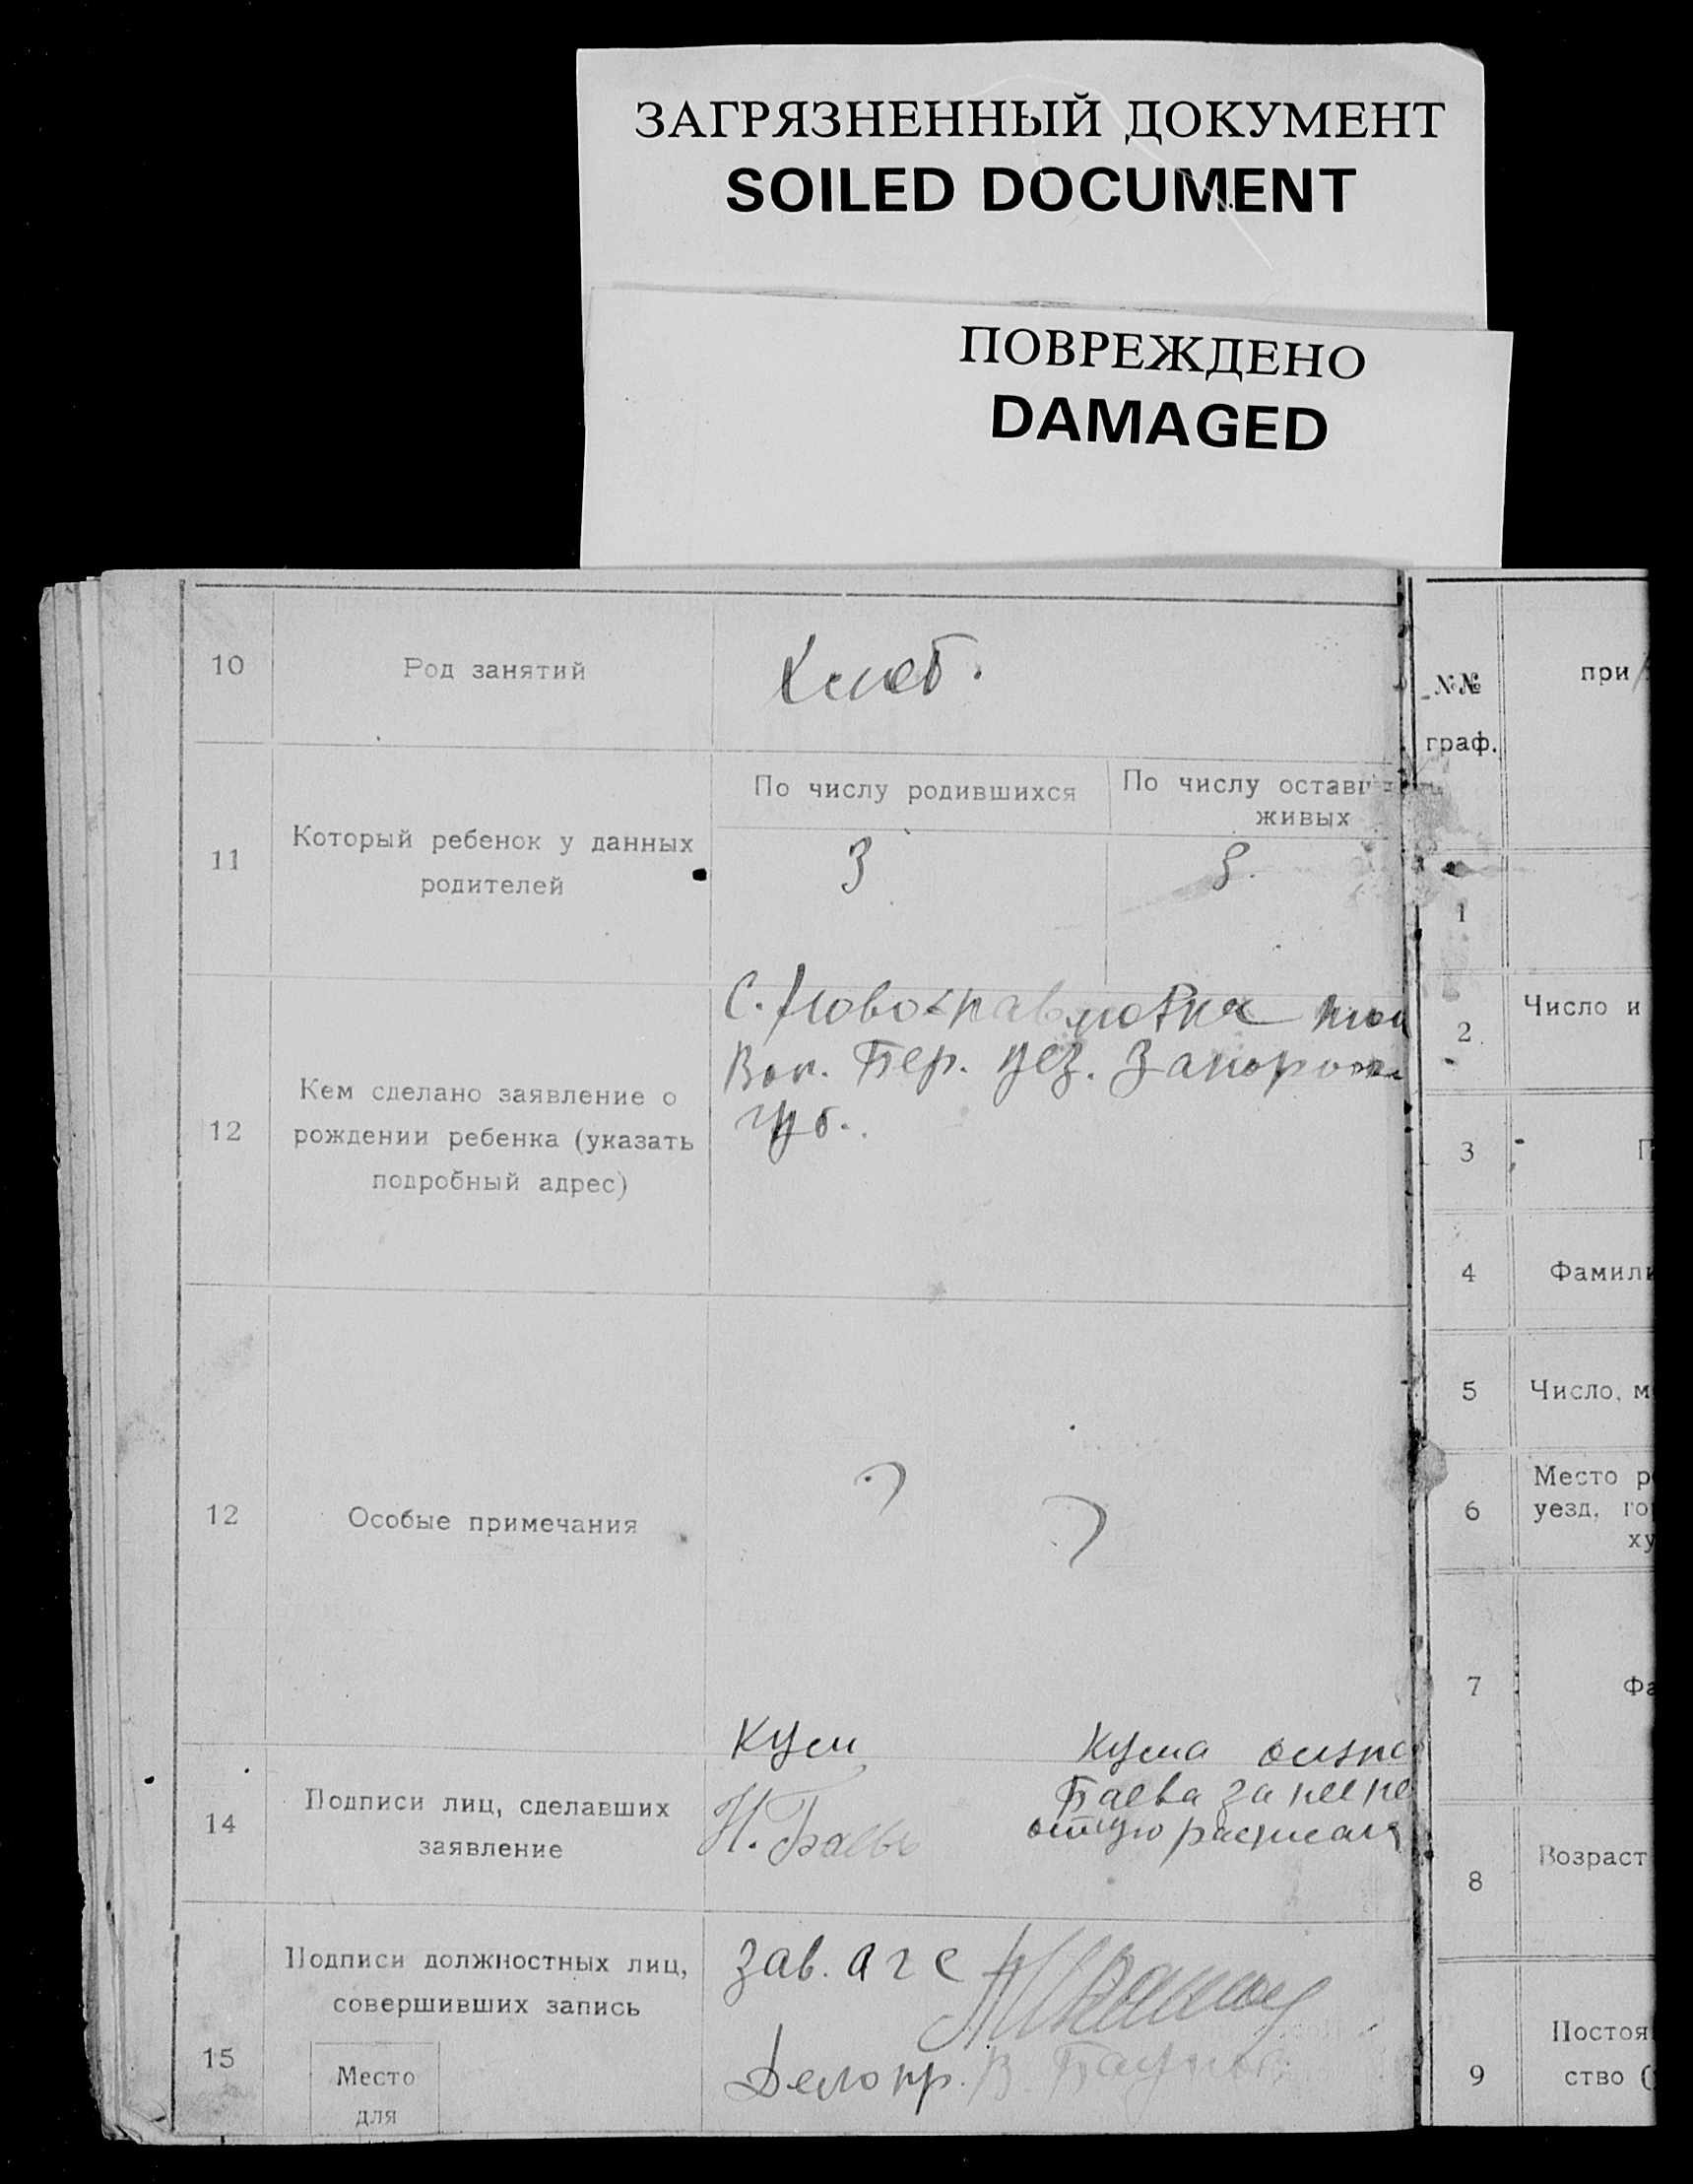 ЗАГРЯЗНЕННЫЙ ДОКУМЕНТ
SOILED DOCUMENT
ПОВРЕЖДЕНО
DAMAGED
10
Род занятий
Хлеб.
11
Который ребенок у данных
родителей
По числу родившихся
По числу оставш
живых
3
3.
12
Кем сделано заявление о
рождении ребенка (указать
подробный адрес)
С. Новоспавловка
Вол. Бер. уез. Запорож
губ.
12
Особые примечания
14
Подписи лиц, сделавших
заявление
Кум
Н. Баев
Кума
Баева за не
расписался
15
Подписи должностных лиц,
совершивших запись
Место
для
Зав. агс
Делопр. В.
№№
граф.
при
1
2
Число и
3
П
4
Фамили
5
Число, м
6
Место р
уезд, го
ху
7
Фа
8
Возраст
9
Постоя
ство (